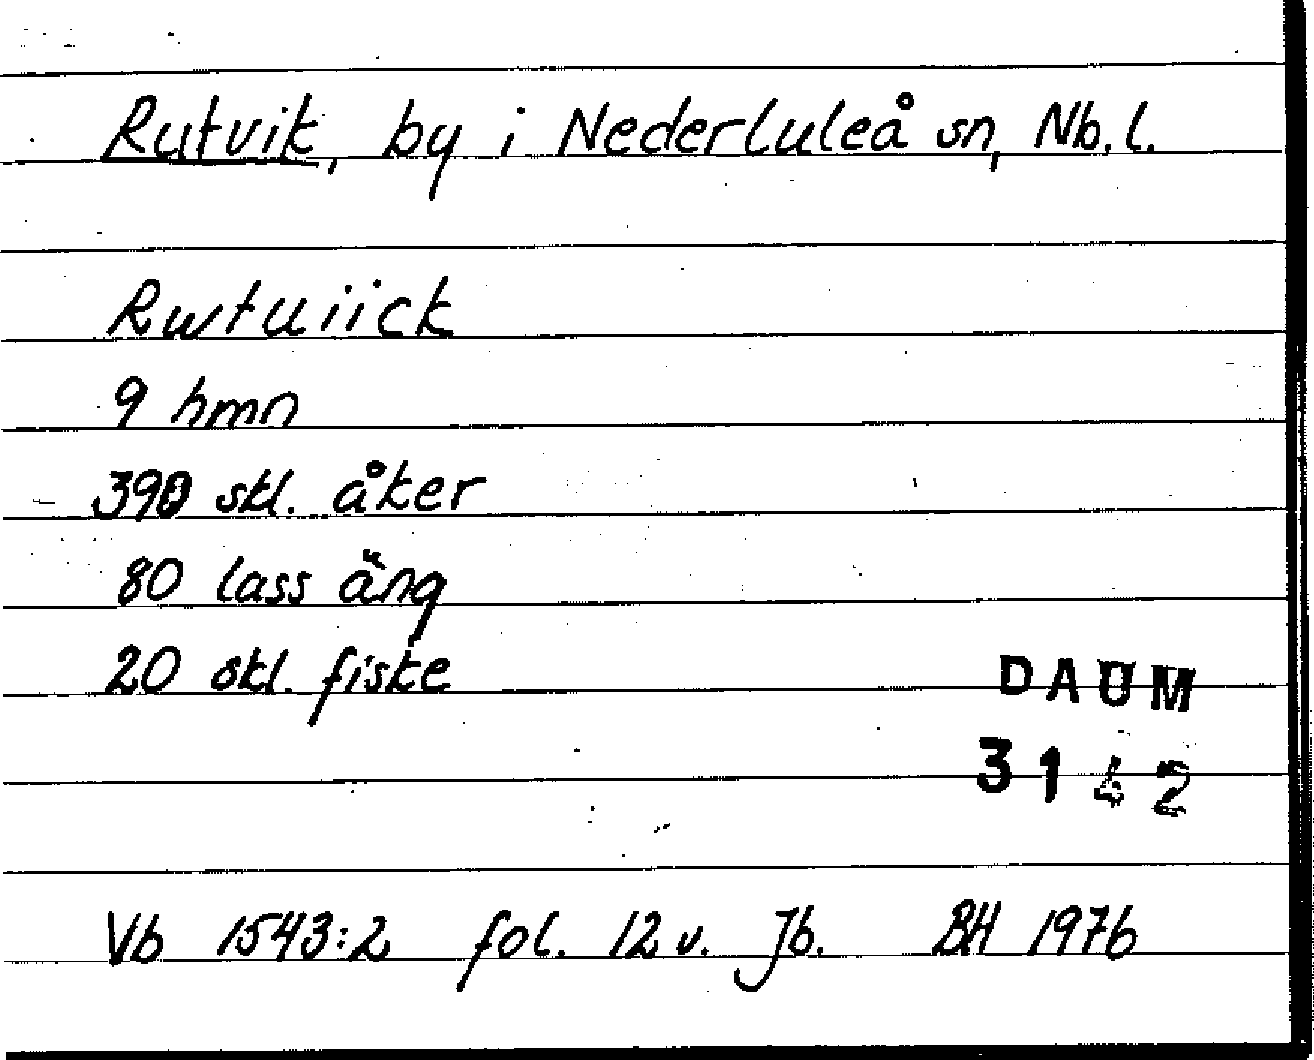 Rutvik, by i Nederluleå sn, Nb.l.
Rwtuiick
9 hmn
390 skl. åker
80 lass äng
20 skl. fiske
DAUM
3142
Vb 1543:2 fol. 12 v. Jb. BH 1976